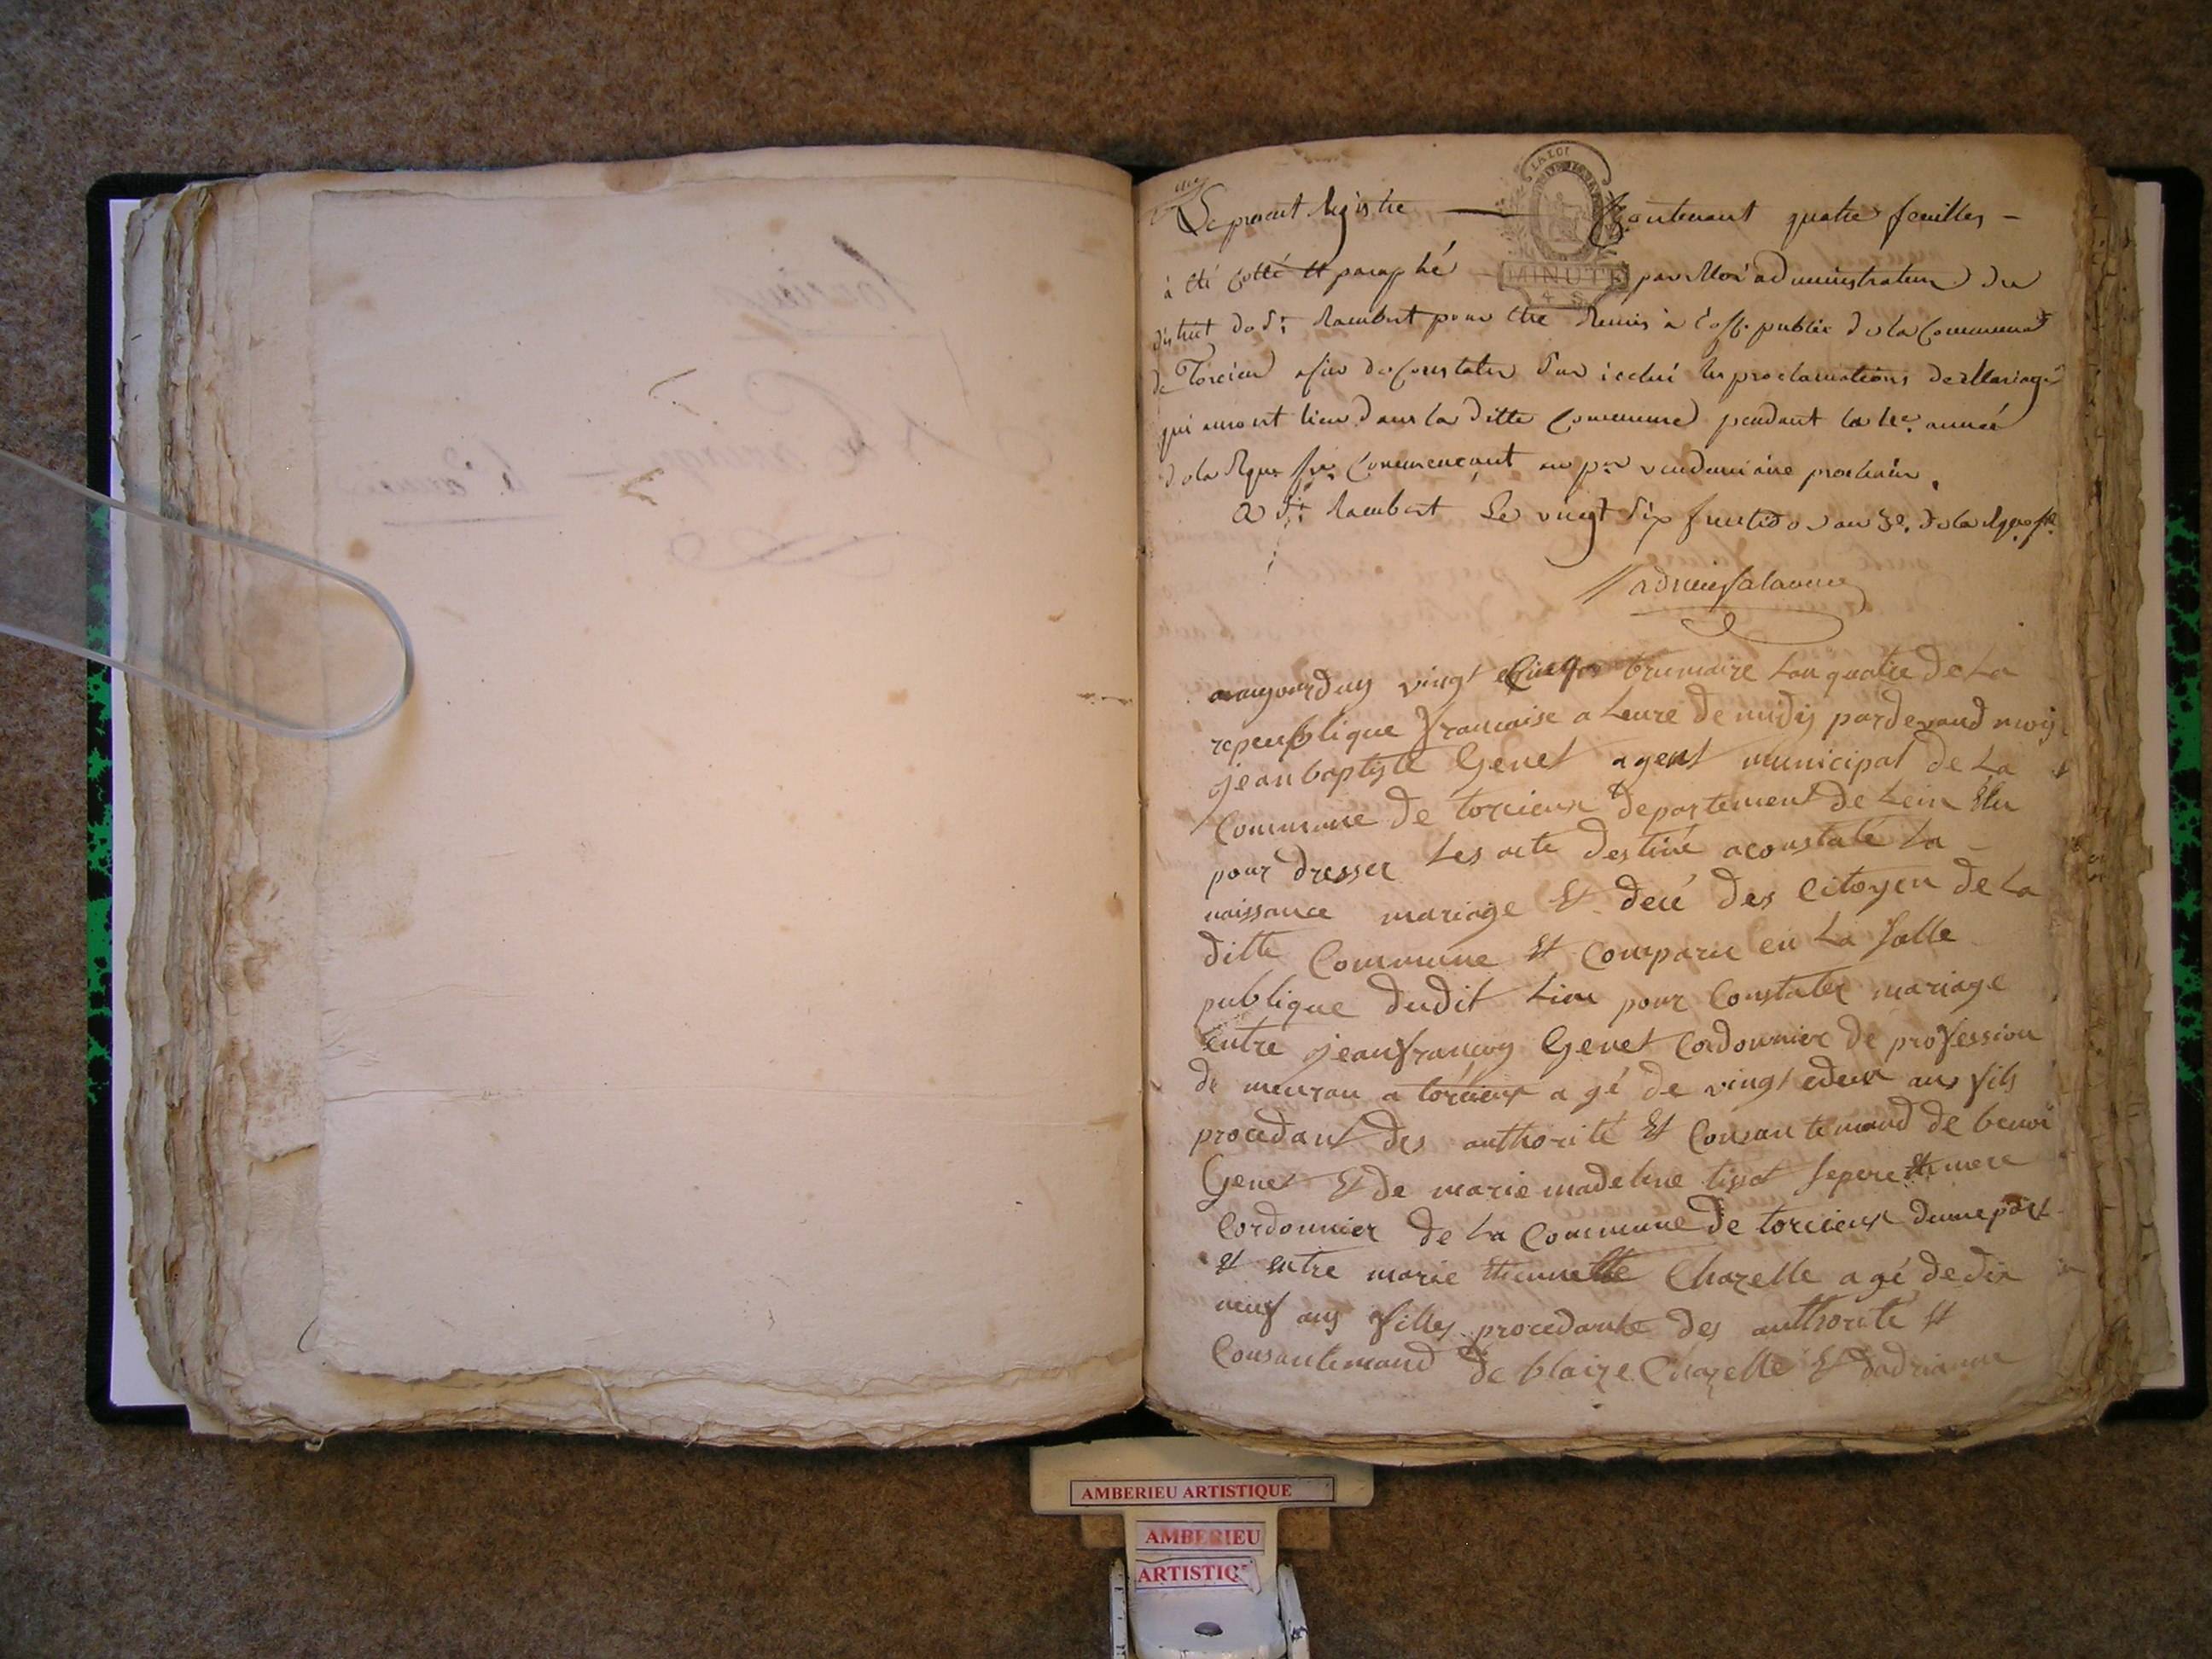 Le present Registre — Contenant quatre feuilles —
LA LOI
à été Cotté et paraphé — par Moi administrateur du
MINUTE
4 S
district de St Rambert pour être Remis à l'off. public de la Commune
de Torcieu afin de Constater Sur icelui les proclamations de Mariage
qui auront lieu dans la ditte Commune pendant la 4e. année
de la Rque fse Commençant au pr vendemiaire prochain.
a St Rambert Le vingt Six fructidor an 3e. de la Rque fse
aujourduy vingt Cinq brumaire Lan quatre de La
repeublique francaise a Leure de midij pardevand moij
jean baptiste Genet agent municipal de La
Commune de torcieux departement de Lein Elu
pour dresser Les acte destiné aconstaté La -
naissance mariage Et decé des Citoyen de La
ditte Commune Et Comparu en La Salle
publique dudit Lieu pour Constater mariage
Entre jean francoy Genet Cordonnier de profession
de meuran a torcieux a gé de vingt edeux ans fils
procedant des authorité Et Consantemand de benoi
Genet Et de marie madeleine tissot Sepere Et mere
Cordonnier de La Commune de torcieux dunne part
Et entre marie Etiennette Chazelle a gé de dix
neuf ans filles procedante des authorité Et
Consantemand de blaize Chazelle Et dadrianne
AMBERIEU ARTISTIQUE
AMBERIEU
ARTISTIQ